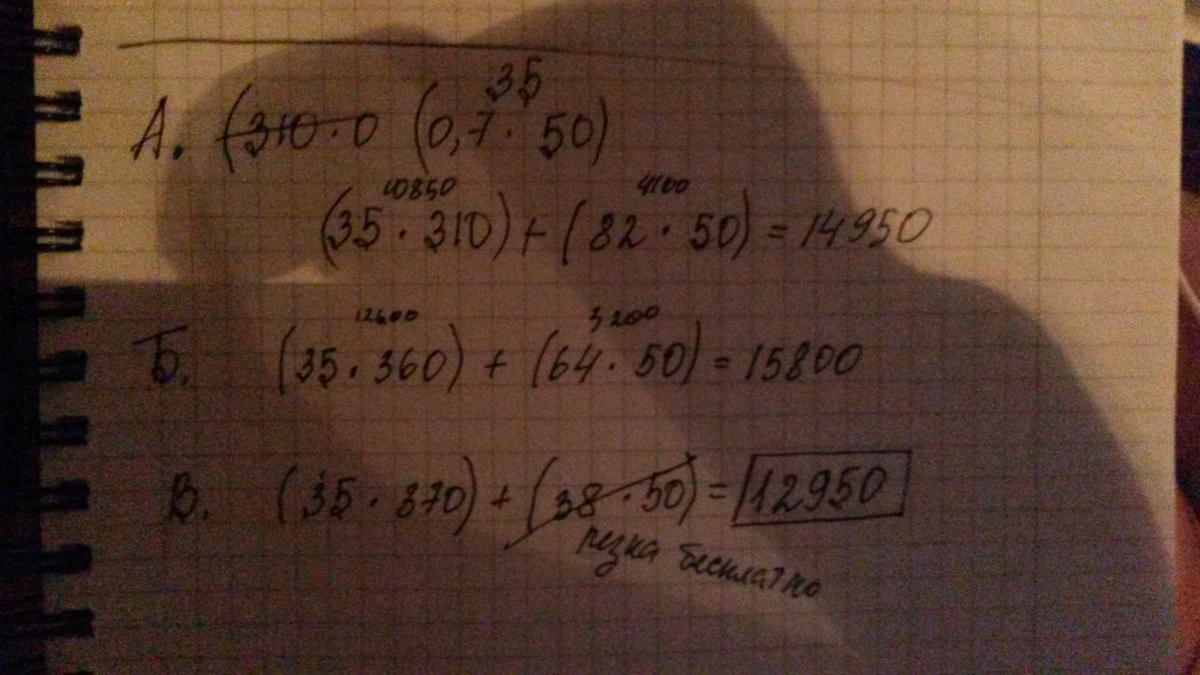 35
А. (310·0 (0,7· 50)
10850 4100
(35 · 310) + (82 · 50) = 14950
12600 3200
Б. (35 · 360) + (64 · 50) = 15800
В. (35 · 370) + (38 · 50) = 12950
резка бесплатно